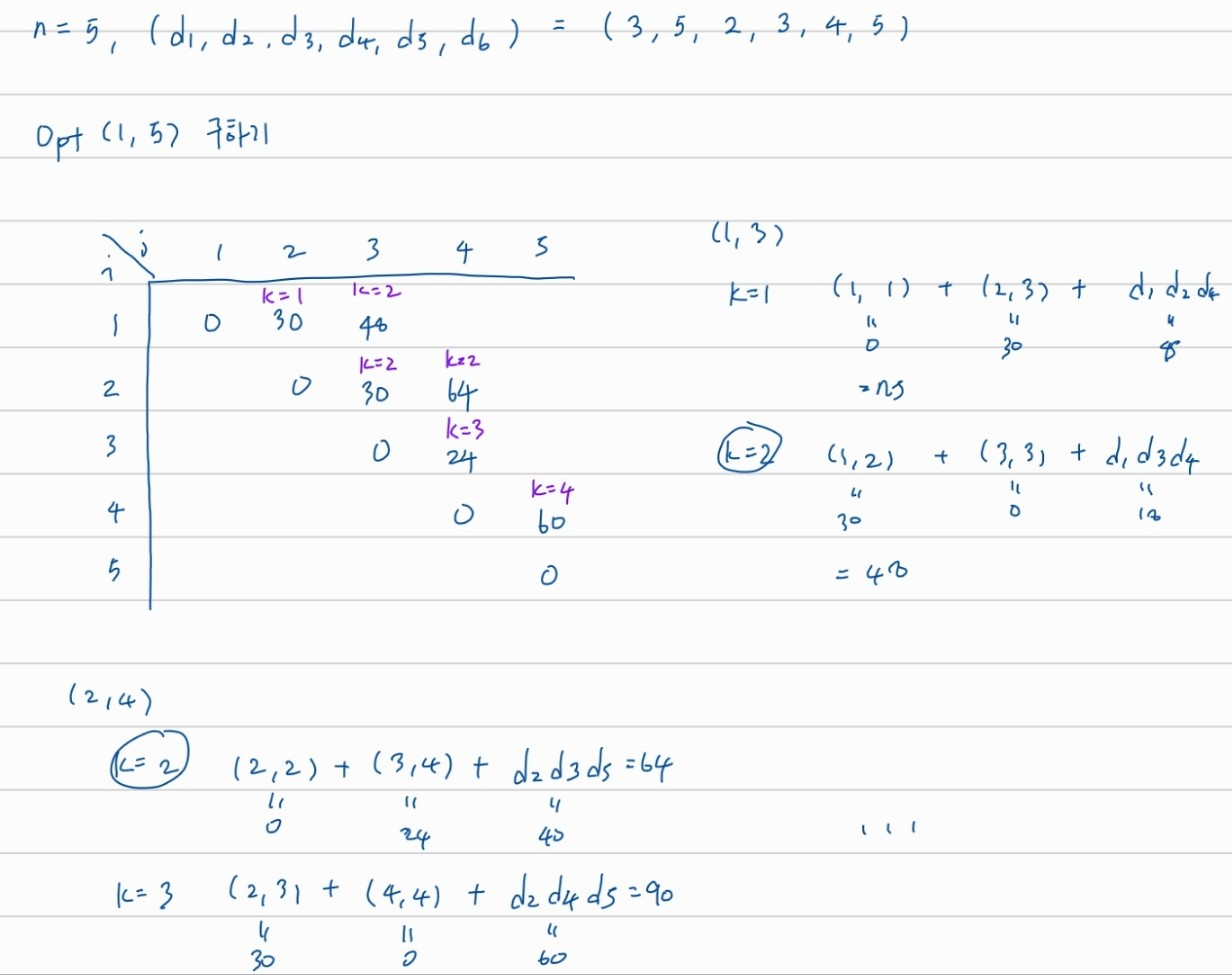 n = 5, (d1, d2, d3, d4, d5, d6) = (3, 5, 2, 3, 4, 5)
Opt (1, 5) 구하기
i \ j 1 2 3 4 5
k=1 k=2
1 0 30 48
k=2 k=2
2 0 30 64
k=3
3 0 24
k=4
4 0 60
5 0
(1, 3)
k=1 (1, 1) + (2, 3) + d1 d2 d4
" " "
0 30
k=2 (1, 2) + (3, 3) + d1 d3 d4
" " "
30 0 18
= 48
(2, 4)
k=2 (2, 2) + (3, 4) + d2 d3 d5 = 64
" " "
0 24 40
...
k=3 (2, 3) + (4, 4) + d2 d4 d5 = 90
" " "
30 0 60